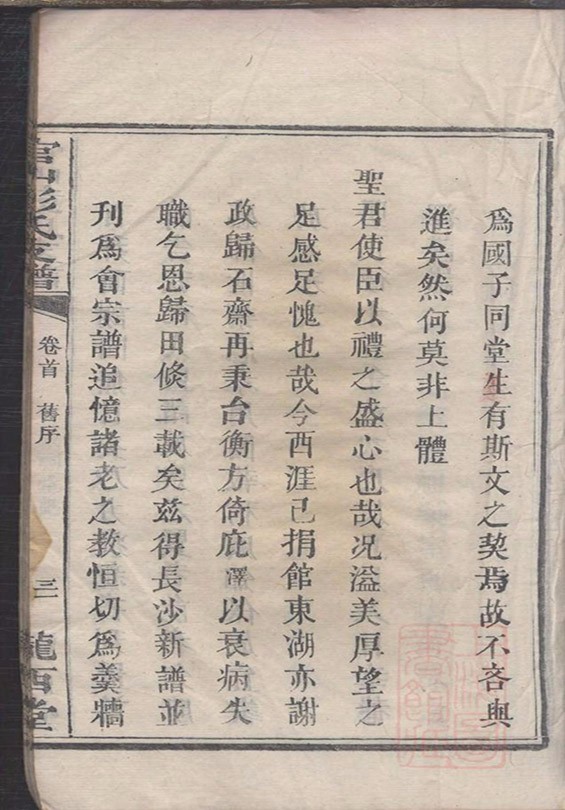 爲國子同堂生有斯文之契焉故不吝與
進矣然何莫非上體
聖君使臣以禮之盛心也哉況溢美厚望之
足感足愧也哉今西涯已捐館東湖亦謝
政歸石齋再秉台衡方倚庇澤以衰病失
職乞恩歸田倐三載矣茲得長沙新譜並
刊爲會宗譜追憶諸老之教恒切爲羹牆
官山彭氏支譜
卷首 舊序
三
隴西堂